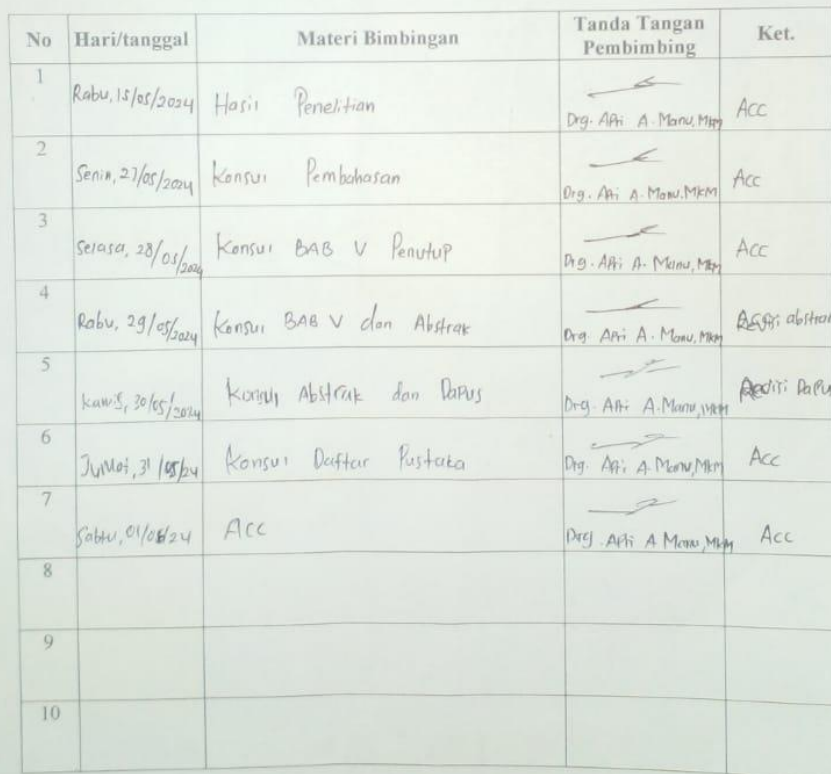 No Hari/tanggal Materi Bimbingan Tanda Tangan Pembimbing Ket.
1 Rabu, 15/05/2024 Hasil Penelitian Drg. Apri A. Manu, MKM Acc
2 Senin, 27/05/2024 Konsul Pembahasan Drg. Apri A. Manu. MKM Acc
3 Selasa, 28/05/2024 Konsul BAB V Penutup Drg. Apri A. Manu, MKM Acc
4 Rabu, 29/05/2024 Konsul BAB V dan Abstrak Drg. Apri A. Manu, MKM abstrak
5 Kamis, 30/05/2024 Konsul Abstrak dan Dapus Drg. Apri A. Manu, MKM Dapus
6 Jumat, 31/05/24 Konsul Daftar Pustaka Drg. Apri A. Manu, MKM Acc
7 Sabtu, 01/06/24 Acc Drg. Apri A Manu, MKM Acc
8
9
10